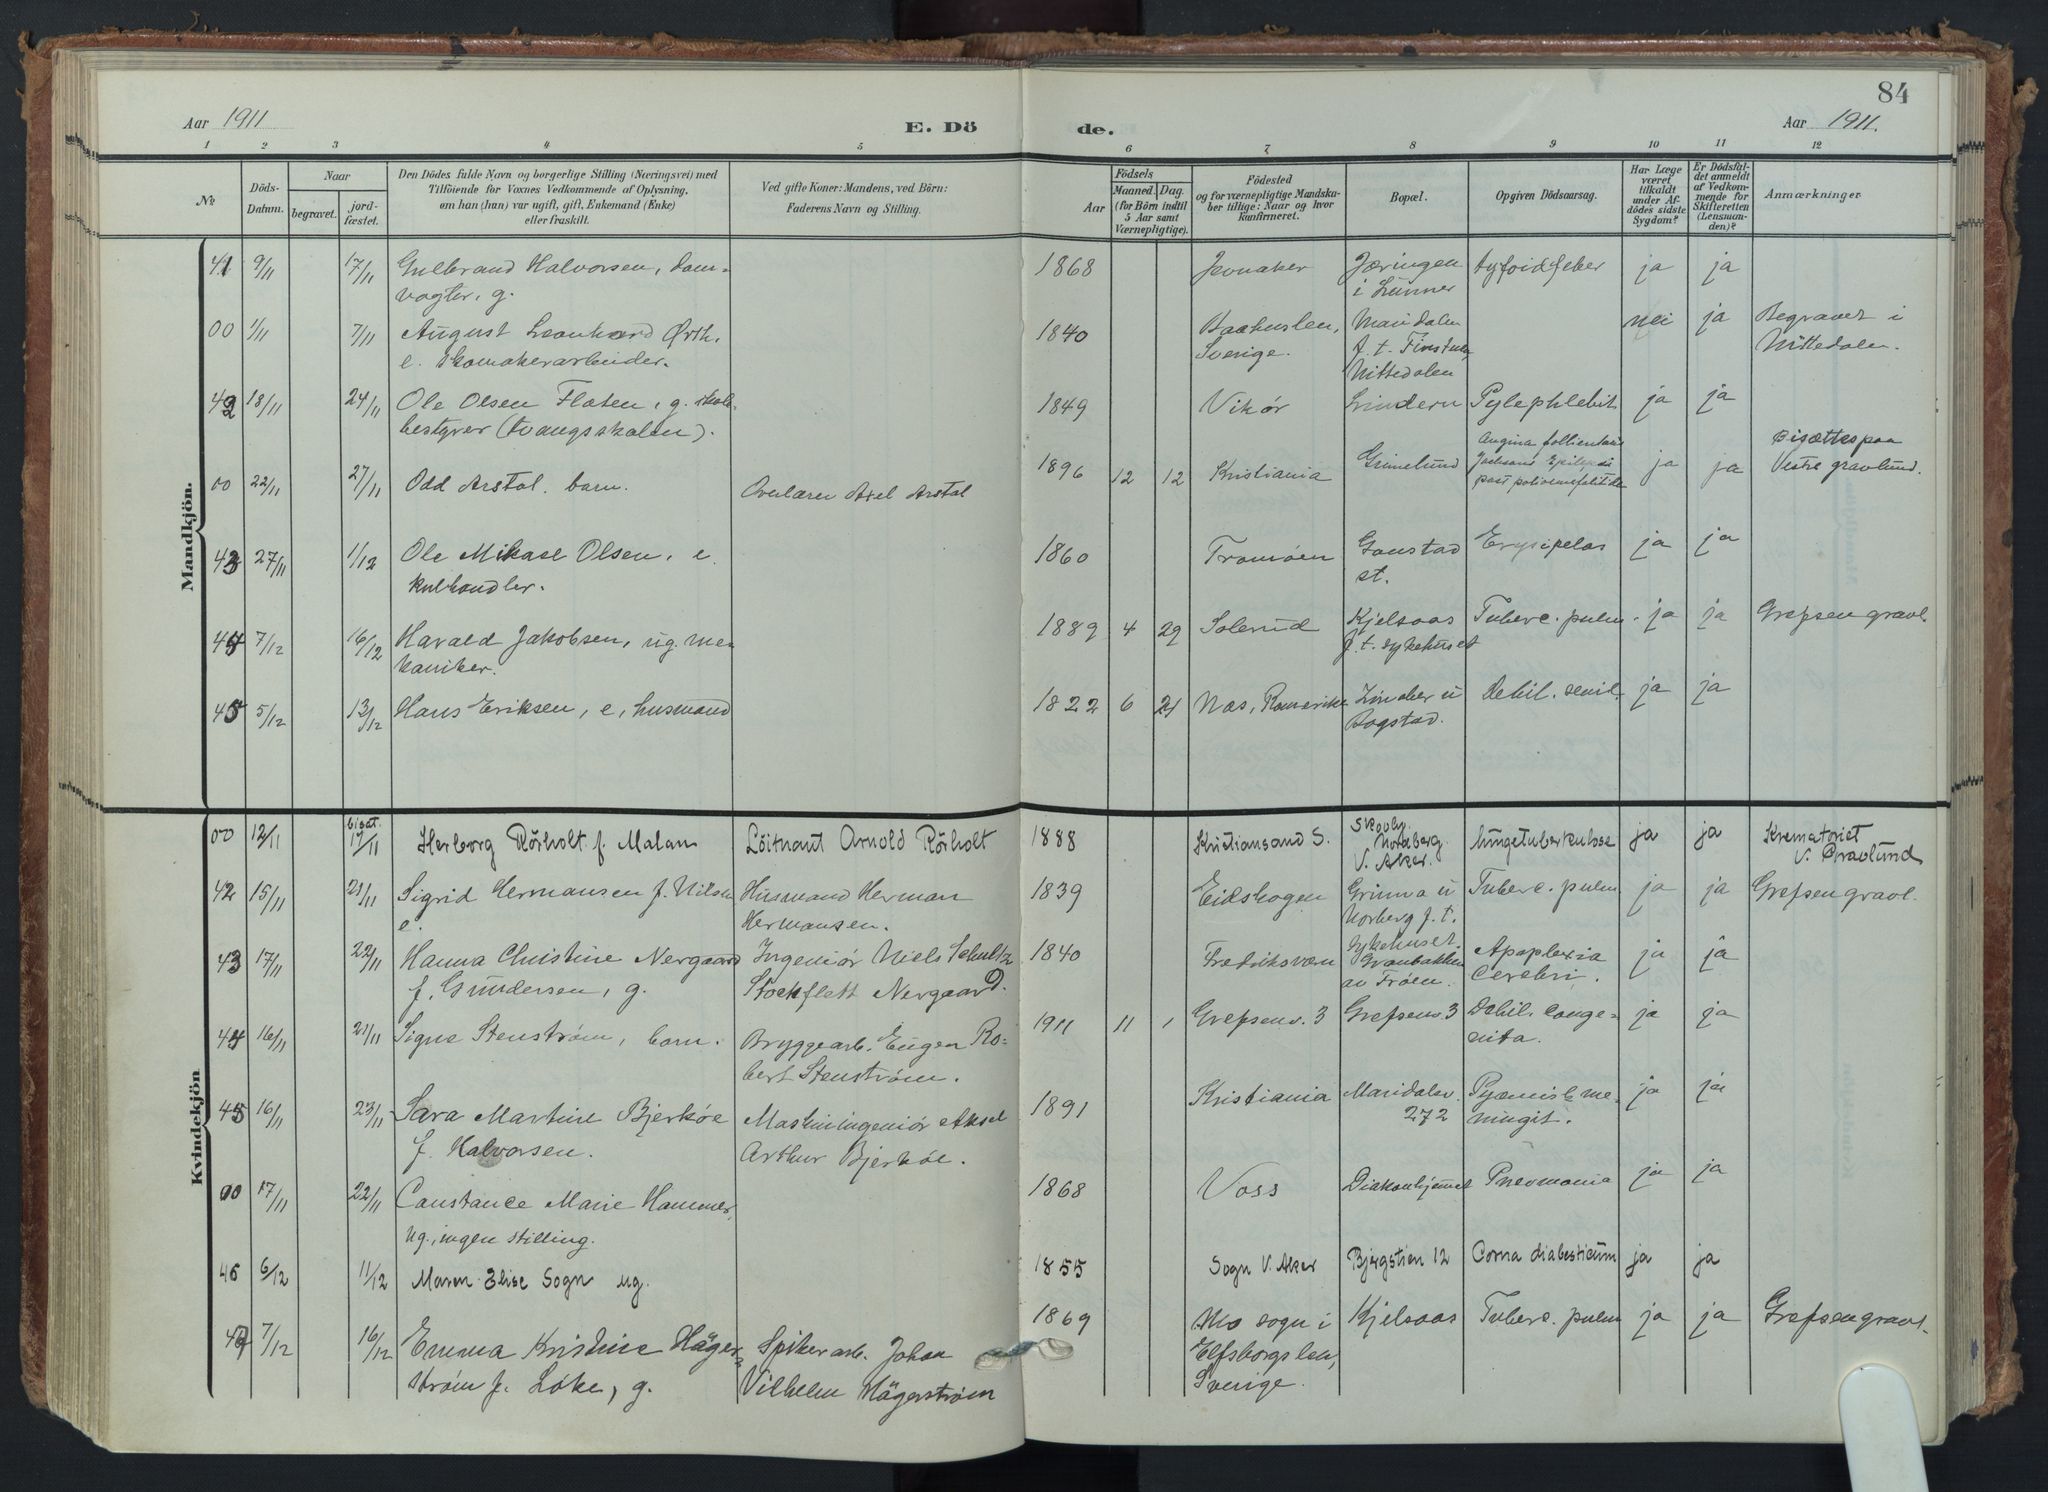 84
Aar 1911
E. Dö
de.
Aar 1911.
1 2 3 4 5 6 7 8 9 10 11 12
№
Döds-Datum.
Naar
begravet.
jord-fæstet.
Den Dödes fulde Navn og borgerlige Stilling (Næringsvei) med
Tilföiende for Voxnes Vedkommende af Oplysning,
om han (hun) var ugift, gift, Enkemand (Enke)
eller fraskilt.
Ved gifte Koner: Mandens, ved Börn:
Faderens Navn og Stilling.
Födsels
Aar
Maaned. Dag.
(for Börn indtil
5 Aar samt
Værnepligtige).
Födested
og for værnepligtige Mandska-
ber tillige: Naar og hvor
konfirmeret.
Bopæl.
Opgiven Dödsaarsag.
Har Læge
været
tilkaldt
under Af-
dödes sidste
Sygdom?
Er Dödsfal-
det anmeldt
af Vedkom-
mende for
Skifteretten
(Lensman-
den)?
Anmærkninger
Mandkjön.
41 9/11 17/11 Gulbrand Halvorsen, dam- 1868 Jevnaker Jæringen tyfoidfeber ja ja
vogter, g. i Lunner
00 1/11 7/11 August Leonhard Ørth, 1840 Baahuslen, Maridalen nei ja Begravet i
e. skomakerarbeider. Sverige. f. t. Nittedalen.
Nittedalen
42 18/11 24/11 Ole Olsen Flaten, g. skole- 1849 Vikør Lindern Pylephlebit ja ja
bestyrer (tvangsskolen).
00 22/11 27/11 Odd Arstal, barn. Overlærer Axel Arstal 1896 12 12 Kristiania Grimelund Angina ja ja Bisættes paa
Vestre gravlund.
43 27/11 1/12 Ole Mikael Olsen, e. 1860 Tromøen Gaustad Erysipelas ja ja
kulhandler. st.
44 7/12 16/12 Harald Jakobsen, ug. me- 1889 4 29 Solerud Kjelsaas Tuberc. pulm. ja ja Grefsen gravl.
kaniker. f. t. sykehuset
45 5/12 13/12 Hans Eriksen, e, husmand 1822 6 21 Næs, Romerike u Debil. senil. ja ja
Bogstad.
Kvindekjön
bisat.
00 12/11 17/11 Herborg Rörholt f. Malan Löitnant Arnold Rörholt 1888 Kristiansand S. Nordberg lungetuberkulose ja ja Krematoriet
V. Aker. V. Gravlund
42 15/11 21/11 Sigrid Hermansen f. Nilsen Husmand Herman 1839 Eidskogen Grinna u Tuberc. pulm ja ja Grefsen gravl.
e. Hermansen. Norberg f. t.
sykehuset.
43 17/11 22/11 Hanna Christine Nergaard Ingeniør Niels Schultz 1840 Fredriksværn Granbakken Apoplexia ja ja
f. Gundersen, g. Stockflett Nergaard. av Frøen. Cerebri.
44 16/11 21/11 Signe Stenstrøm, barn. Bryggearb. Eugen Ro- 1911 11 1 Grefsenv. 3 Grefsenv 3 Debil. conge- ja ja
bert Stenstrøm. nita.
45 16/11 23/11 Sara Martine Bjerkøe Maskiningeniør Aksel 1891 Kristiania Maridalsv. Pyæmisk me- ja ja
f. Halvorsen. Arthur Bjerkøe. 272 ningit.
00 17/11 22/11 Constance Marie Hammer, 1868 Voss Diakonhjemmet Pneumonia ja ja
ug., ingen stilling.
46 6/12 11/12 Maren Elise Sogn ug. 1855 Sogn V. Aker Bjergstien 12 Coma diabeticum ja ja
47 7/12 16/12 Emma Kristine Häger- Spikerarb. Johan 1869 Mo sogn i Kjelsaas Tuberc. pulm ja ja Grefsen gravl.
strøm f. Løke, g. Vilhelm Hägerstrøm Elfsborgs len,
Sverige.